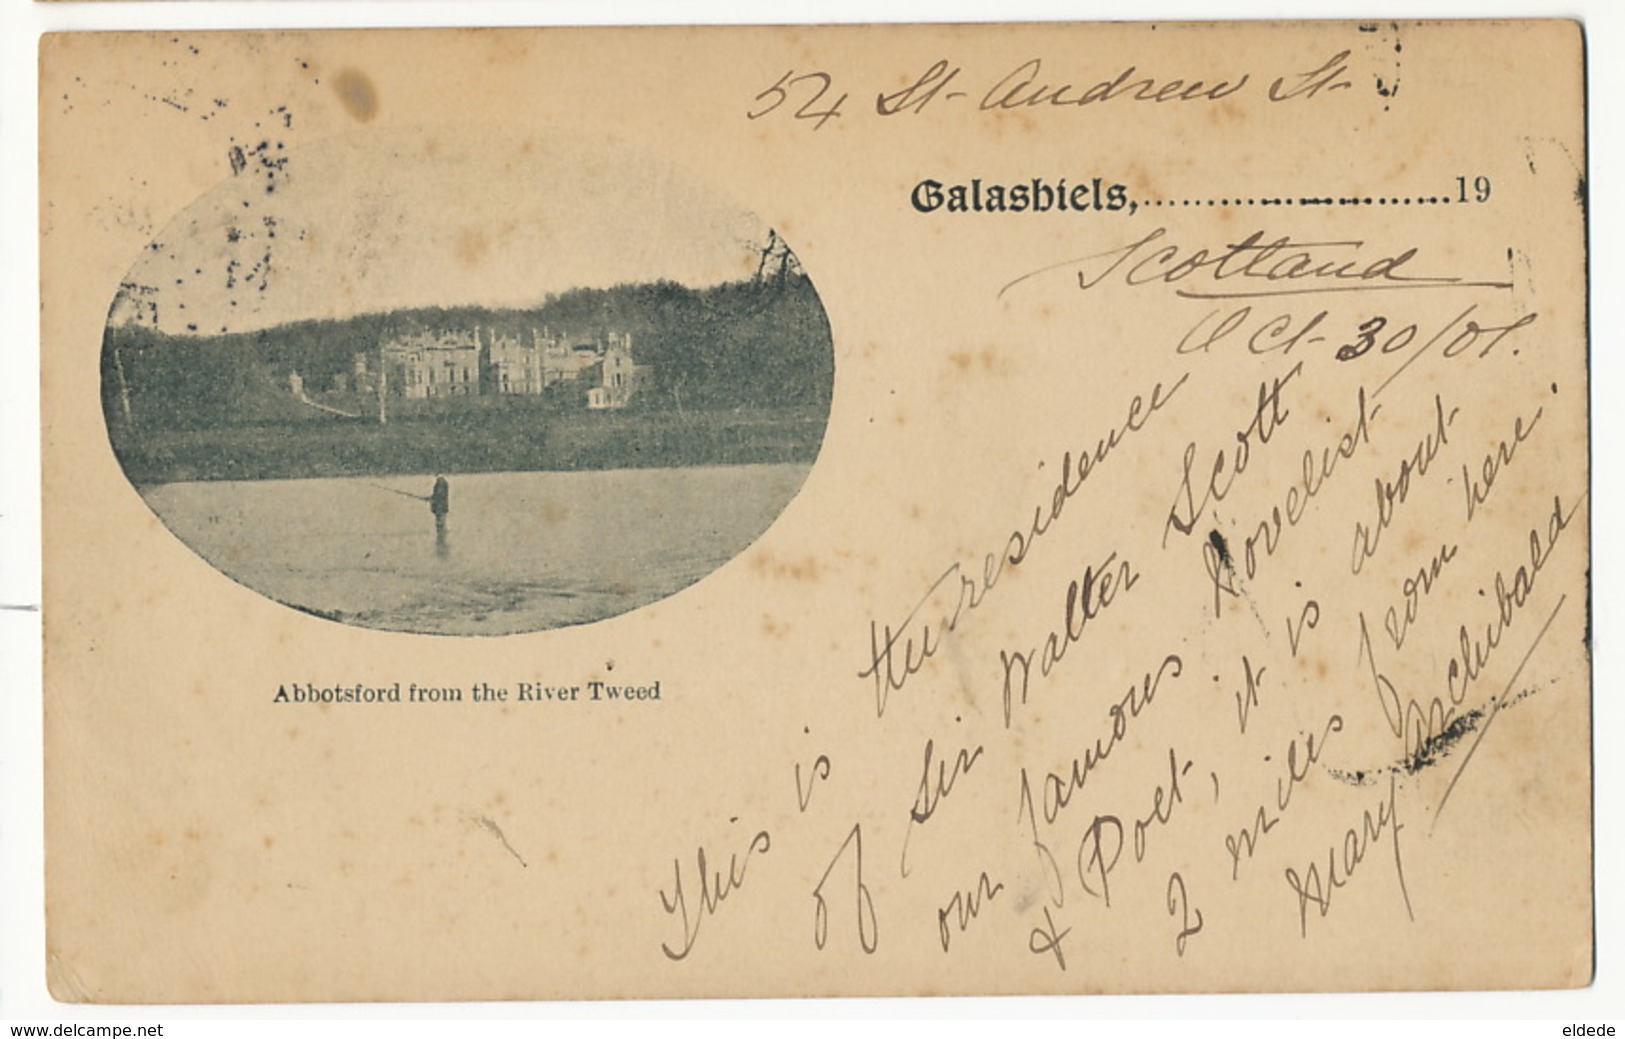 54 St- Andrew St-
Galashiels,..............................19
Scotland
Oct- 30/01.
This is the residence
of Sir Walter Scott
our famous Novelist-
& Poet, it is about-
2 miles from here.
Mary Archibald
Abbotsford from the River Tweed
www.delcampe.net
eldede